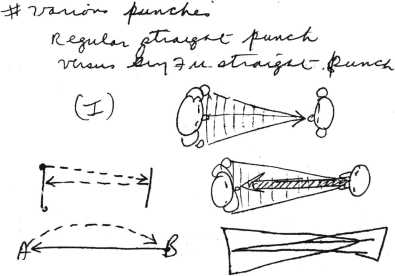 # Various punches
Regular straight punch
versus straight punch
(I)
A B